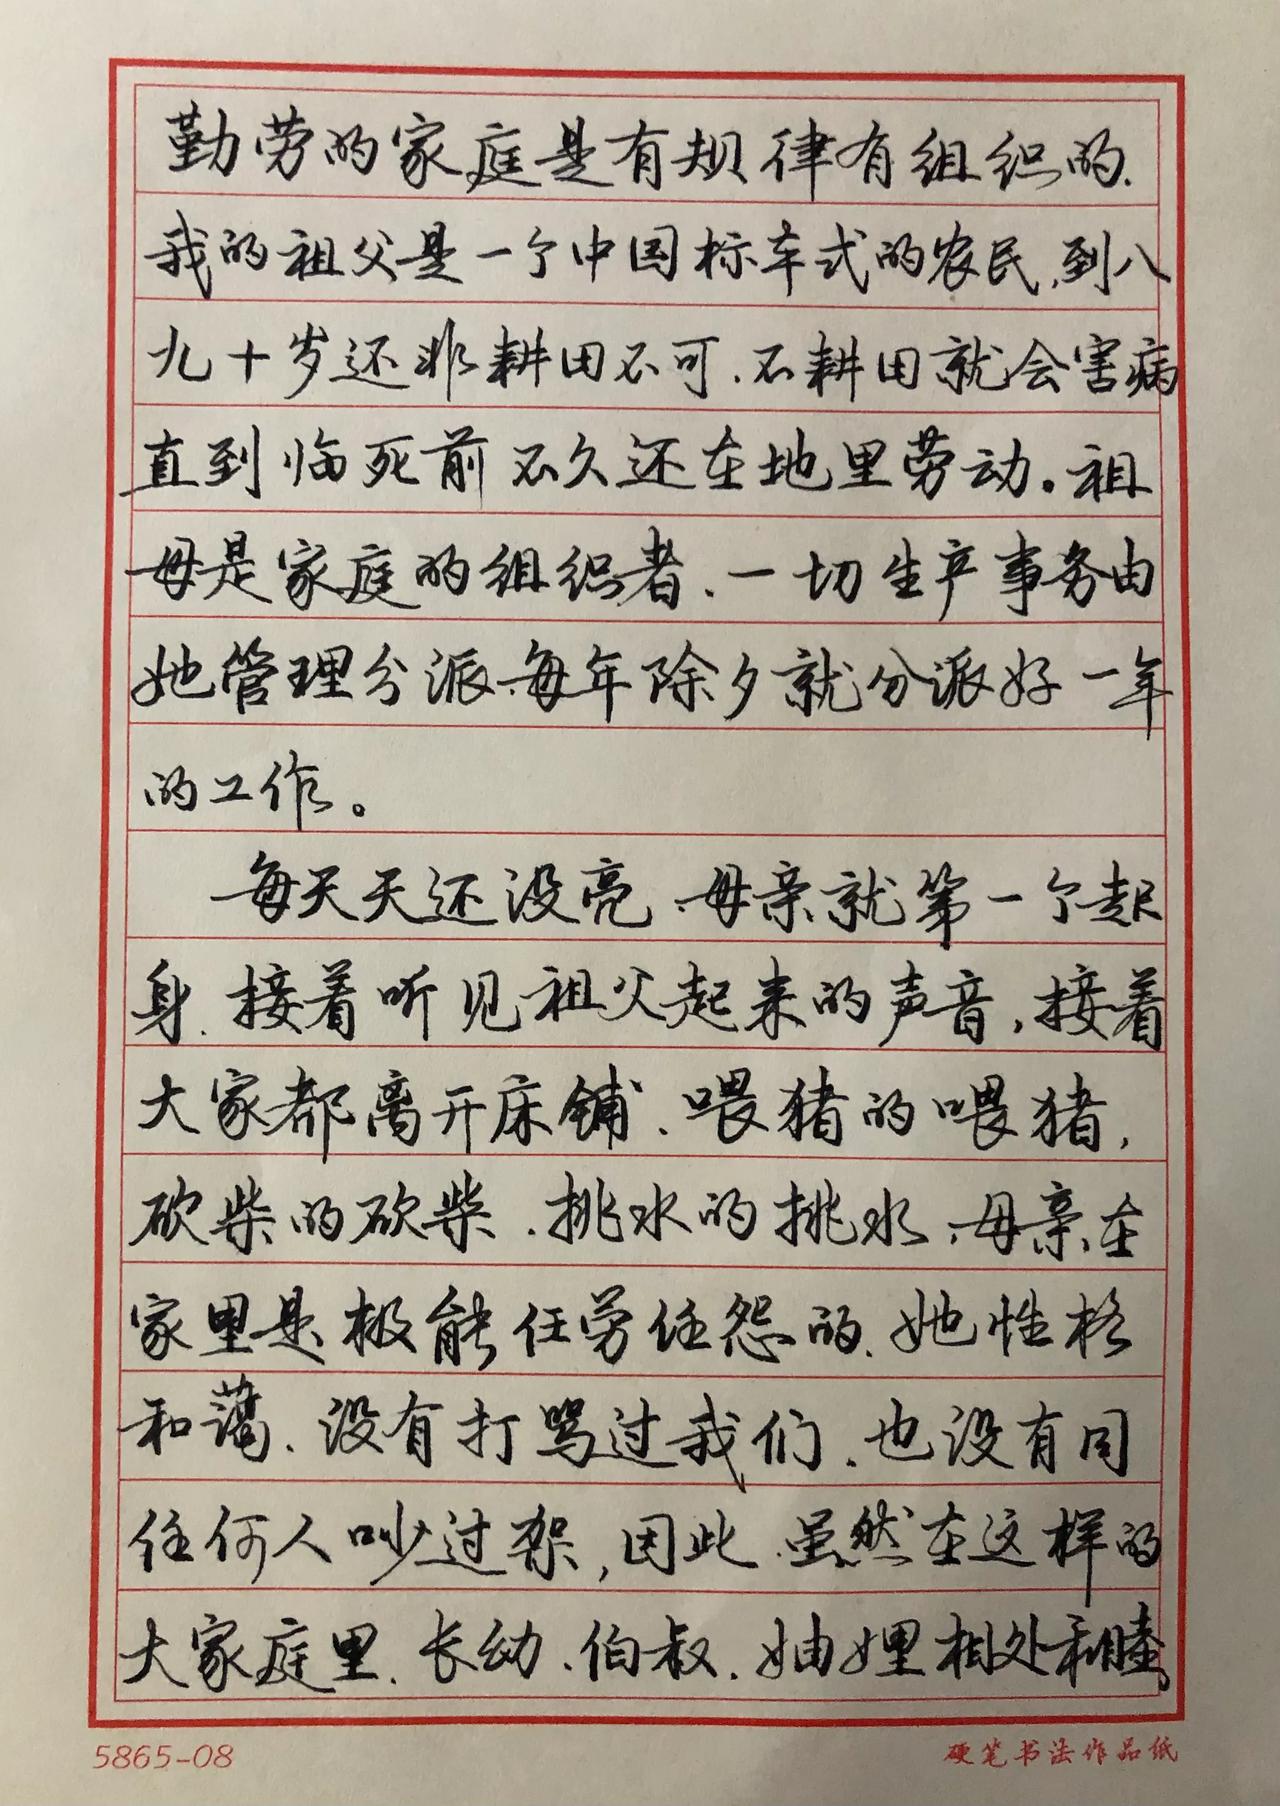 勤劳的家庭是有规律有组织的、
我的祖父是一个中国标本式的农民,到八
九十岁还非耕田不可、不耕田就会害病
直到临死前不久还在地里劳动。祖
母是家庭的组织者、一切生产事务由
她管理分派、每年除夕就分派好一年
的工作。
每天天还没亮、母亲就第一个起
身、接着听见祖父起来的声音,接着
大家都离开床铺、喂猪的喂猪,
砍柴的砍柴、挑水的挑水、母亲在
家里是极能任劳任怨的、她性格
和蔼、没有打骂过我们、也没有同
任何人吵过架,因此、虽然在这样的
大家庭里、长幼、伯叔、妯娌相处和睦。
5865-08
硬笔书法作品纸